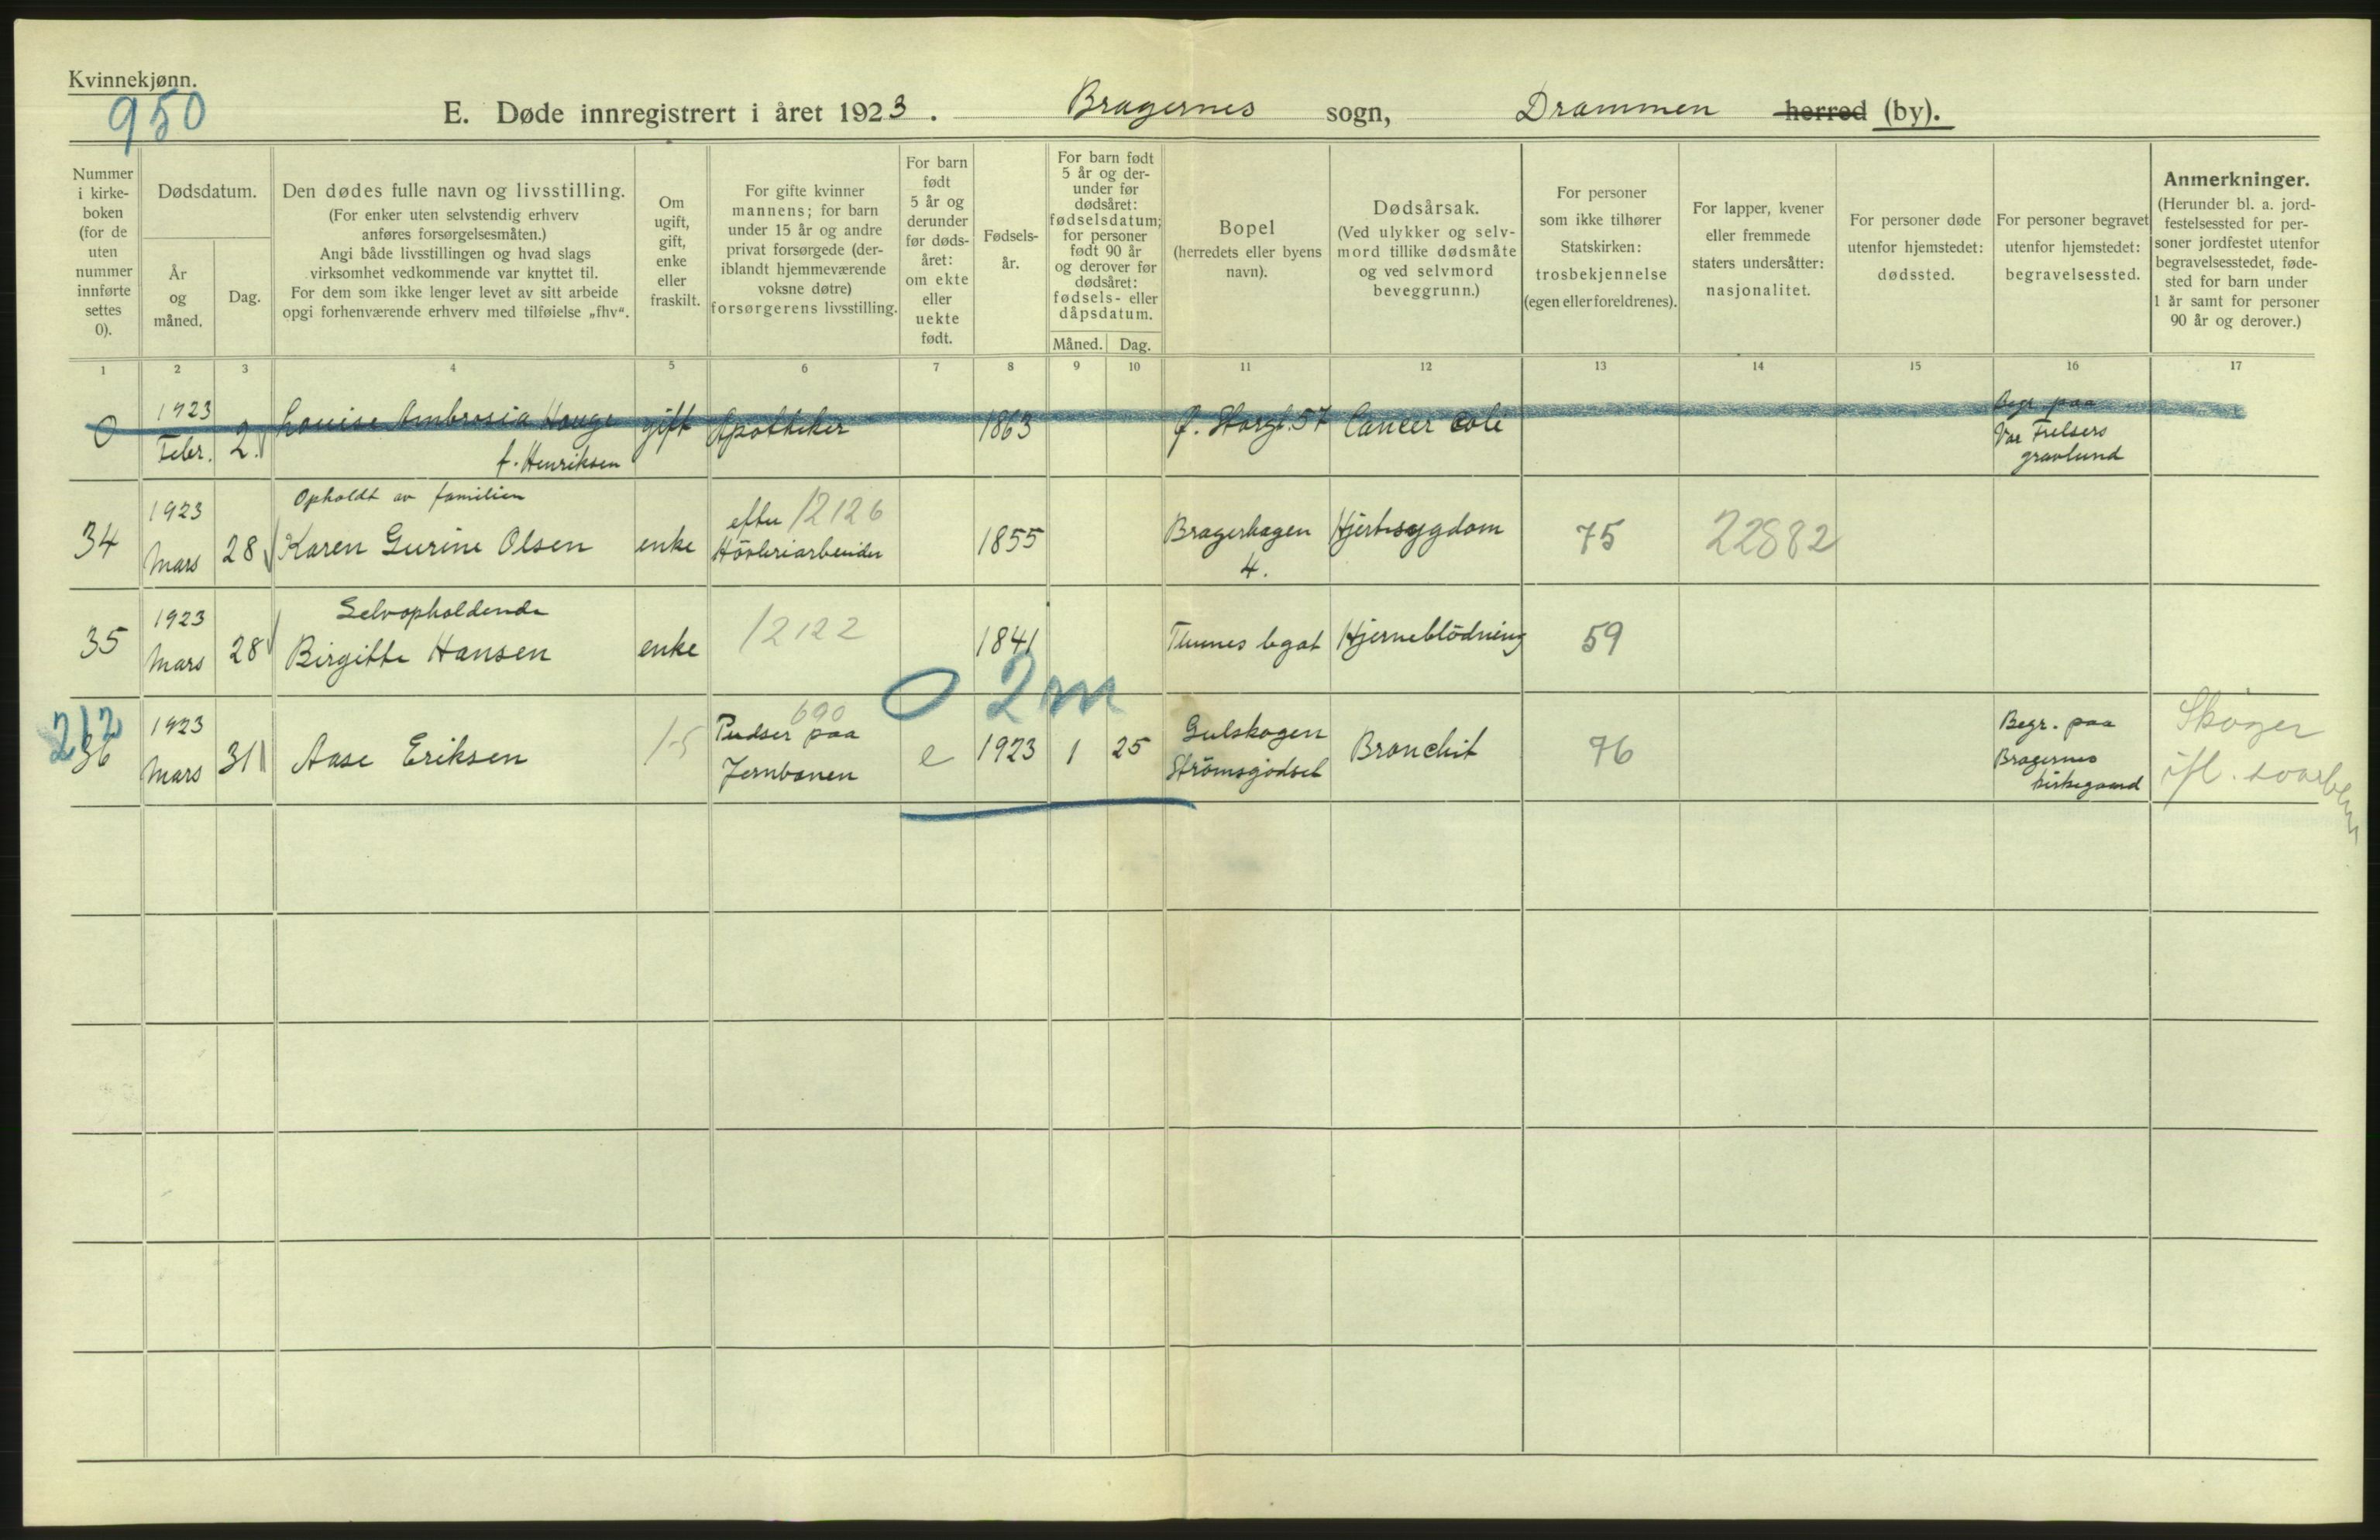 Kvinnekjønn.
950
E. Døde innregistrert i året 1923. Bragernes sogn, Drammen herred (by).
Nummer i kirke-boken (for de uten nummer innførte settes 0).
Dødsdatum.
År og måned.
Dag.
Den dødes fulle navn og livsstilling.
(For enker uten selvstendig erhverv anføres forsørgelsesmåten.)
Angi både livsstillingen og hvad slags virksomhet vedkommende var knyttet til.
For dem som ikke lenger levet av sitt arbeide opgi forhenværende erhverv med tilføielse „fhv“.
Om ugift, gift, enke eller fraskilt.
For gifte kvinner mannens; for barn under 15 år og andre privat forsørgede (der-iblandt hjemmeværende voksne døtre) forsørgerens livsstilling.
For barn født 5 år og derunder før døds-året: om ekte eller uekte født.
Fødsels-år.
For barn født 5 år og der-under før dødsåret: fødselsdatum; for personer født 90 år og derover før dødsåret: fødsels- eller dåpsdatum.
Måned. Dag.
Bopel (herredets eller byens navn).
Dødsårsak. (Ved ulykker og selv-mord tillike dødsmåte og ved selvmord beveggrunn.)
For personer som ikke tilhører Statskirken: trosbekjennelse (egen eller foreldrenes).
For lapper, kvener eller fremmede staters undersåtter: nasjonalitet.
For personer døde utenfor hjemstedet: dødssted.
For personer begravet utenfor hjemstedet: begravelsessted.
Anmerkninger. (Herunder bl. a. jord-festelsessted for per-soner jordfestet utenfor begravelsesstedet, føde-sted for barn under 1 år samt for personer 90 år og derover.)
1 2 3 4 5 6 7 8 9 10 11 12 13 14 15 16 17
0 1923 Febr. 2. Louise Ambrosia Hauge f. Henriksen gift Apotheker 1863 Ø. Storgt. 57 Cancer coli Begr. paa Vor Frelsers gravlund
Opholdt av familien
34 1923 Mars 28 Karen Gurine Olsen enke efter Hövleriarbeider 12126 1855 Bragerhagen 4. Hjertesygdom 75 22882
Selvopholdende
35 1923 Mars 28 Birgitte Hansen enke 12122 1841 Thunes legat Hjerneblödning 59
0 2m
212
36 1923 Mars 31 Aase Eriksen 15 690 Pudser paa Jernbanen e 1923 1 25 Gulskogen Strömsgodset Bronchit 76 Begr. paa Bragernes kirkegaard Skoger ifl.